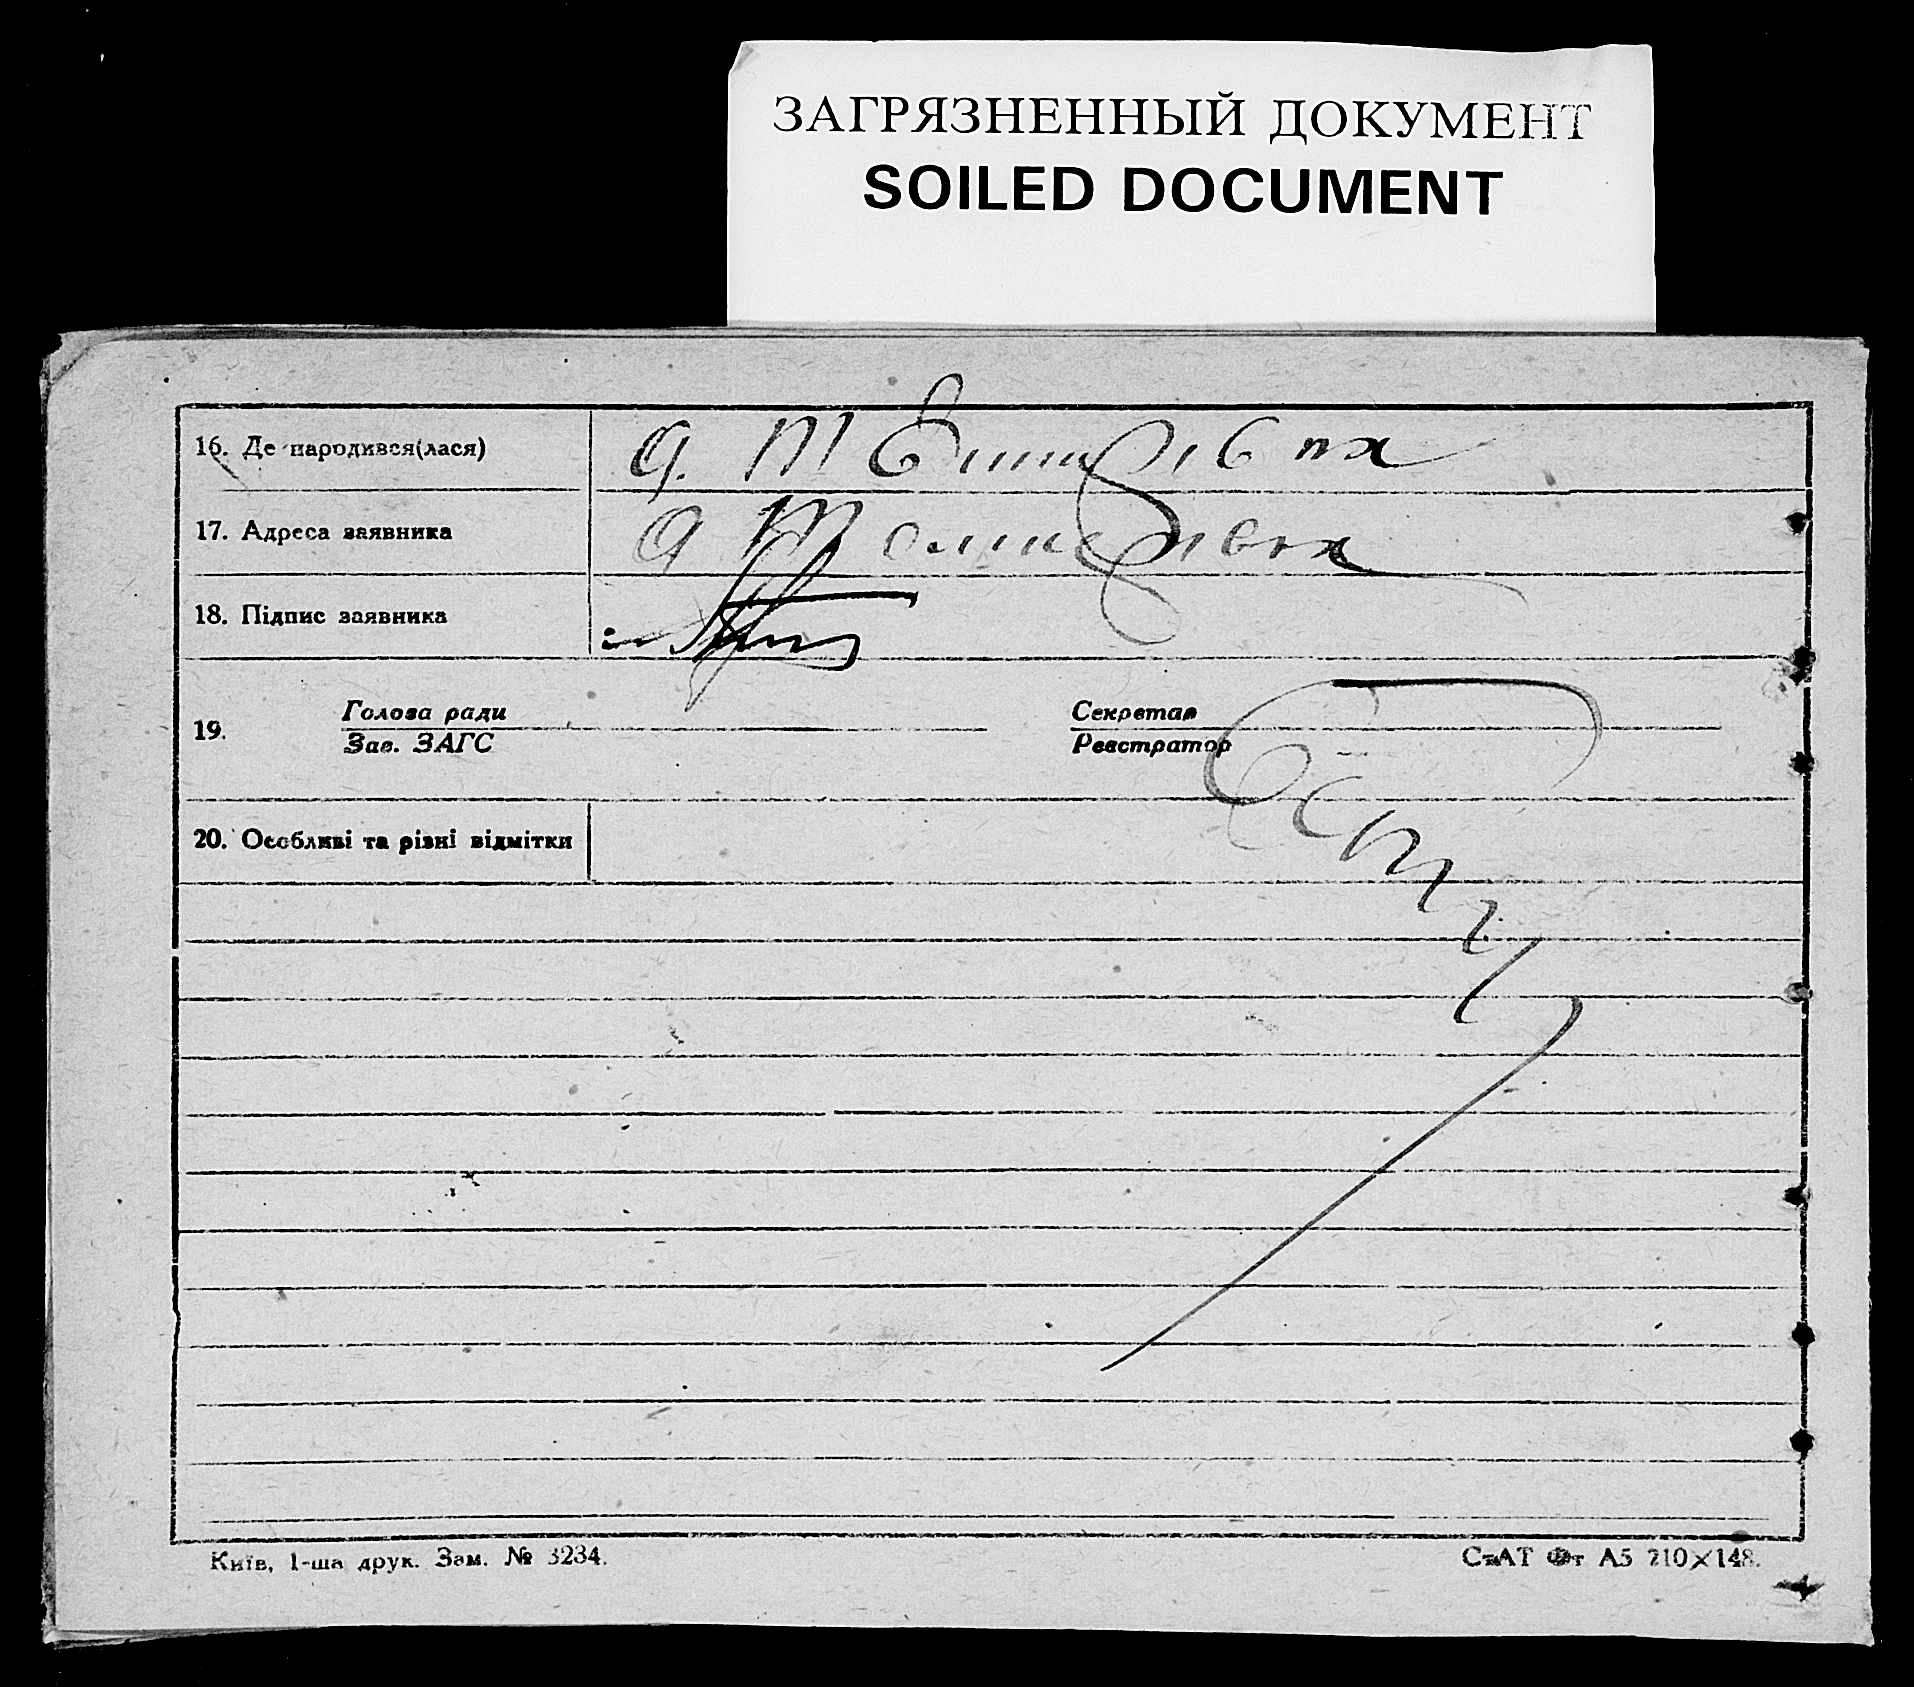 ЗАГРЯЗНЕННЫЙ ДОКУМЕНТ
SOILED DOCUMENT
16. Де народився(лася)
17. Адреса заявника
18. Підпис заявника
19.
Голова ради
Зав. ЗАГС
Секретар
Реєстратор
20. Особливі та різні відмітки
Київ, 1-ша друк. Зам. № 3234.
СтАТ Фт А5 210×148.